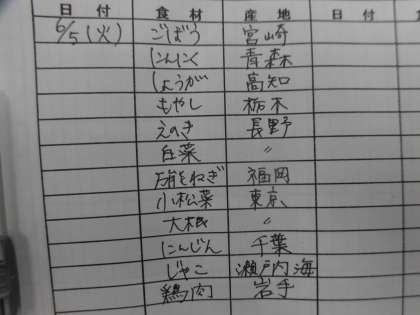 日付 食材 産地 日付 食
6/5(火) ごぼう 宮崎
にんにく 青森
しょうが 高知
もやし 栃木
えのき 長野
白菜 〃
万能ねぎ 福岡
小松菜 東京
大根 〃
にんじん 千葉
じゃこ 瀬戸内海
鶏肉 岩手